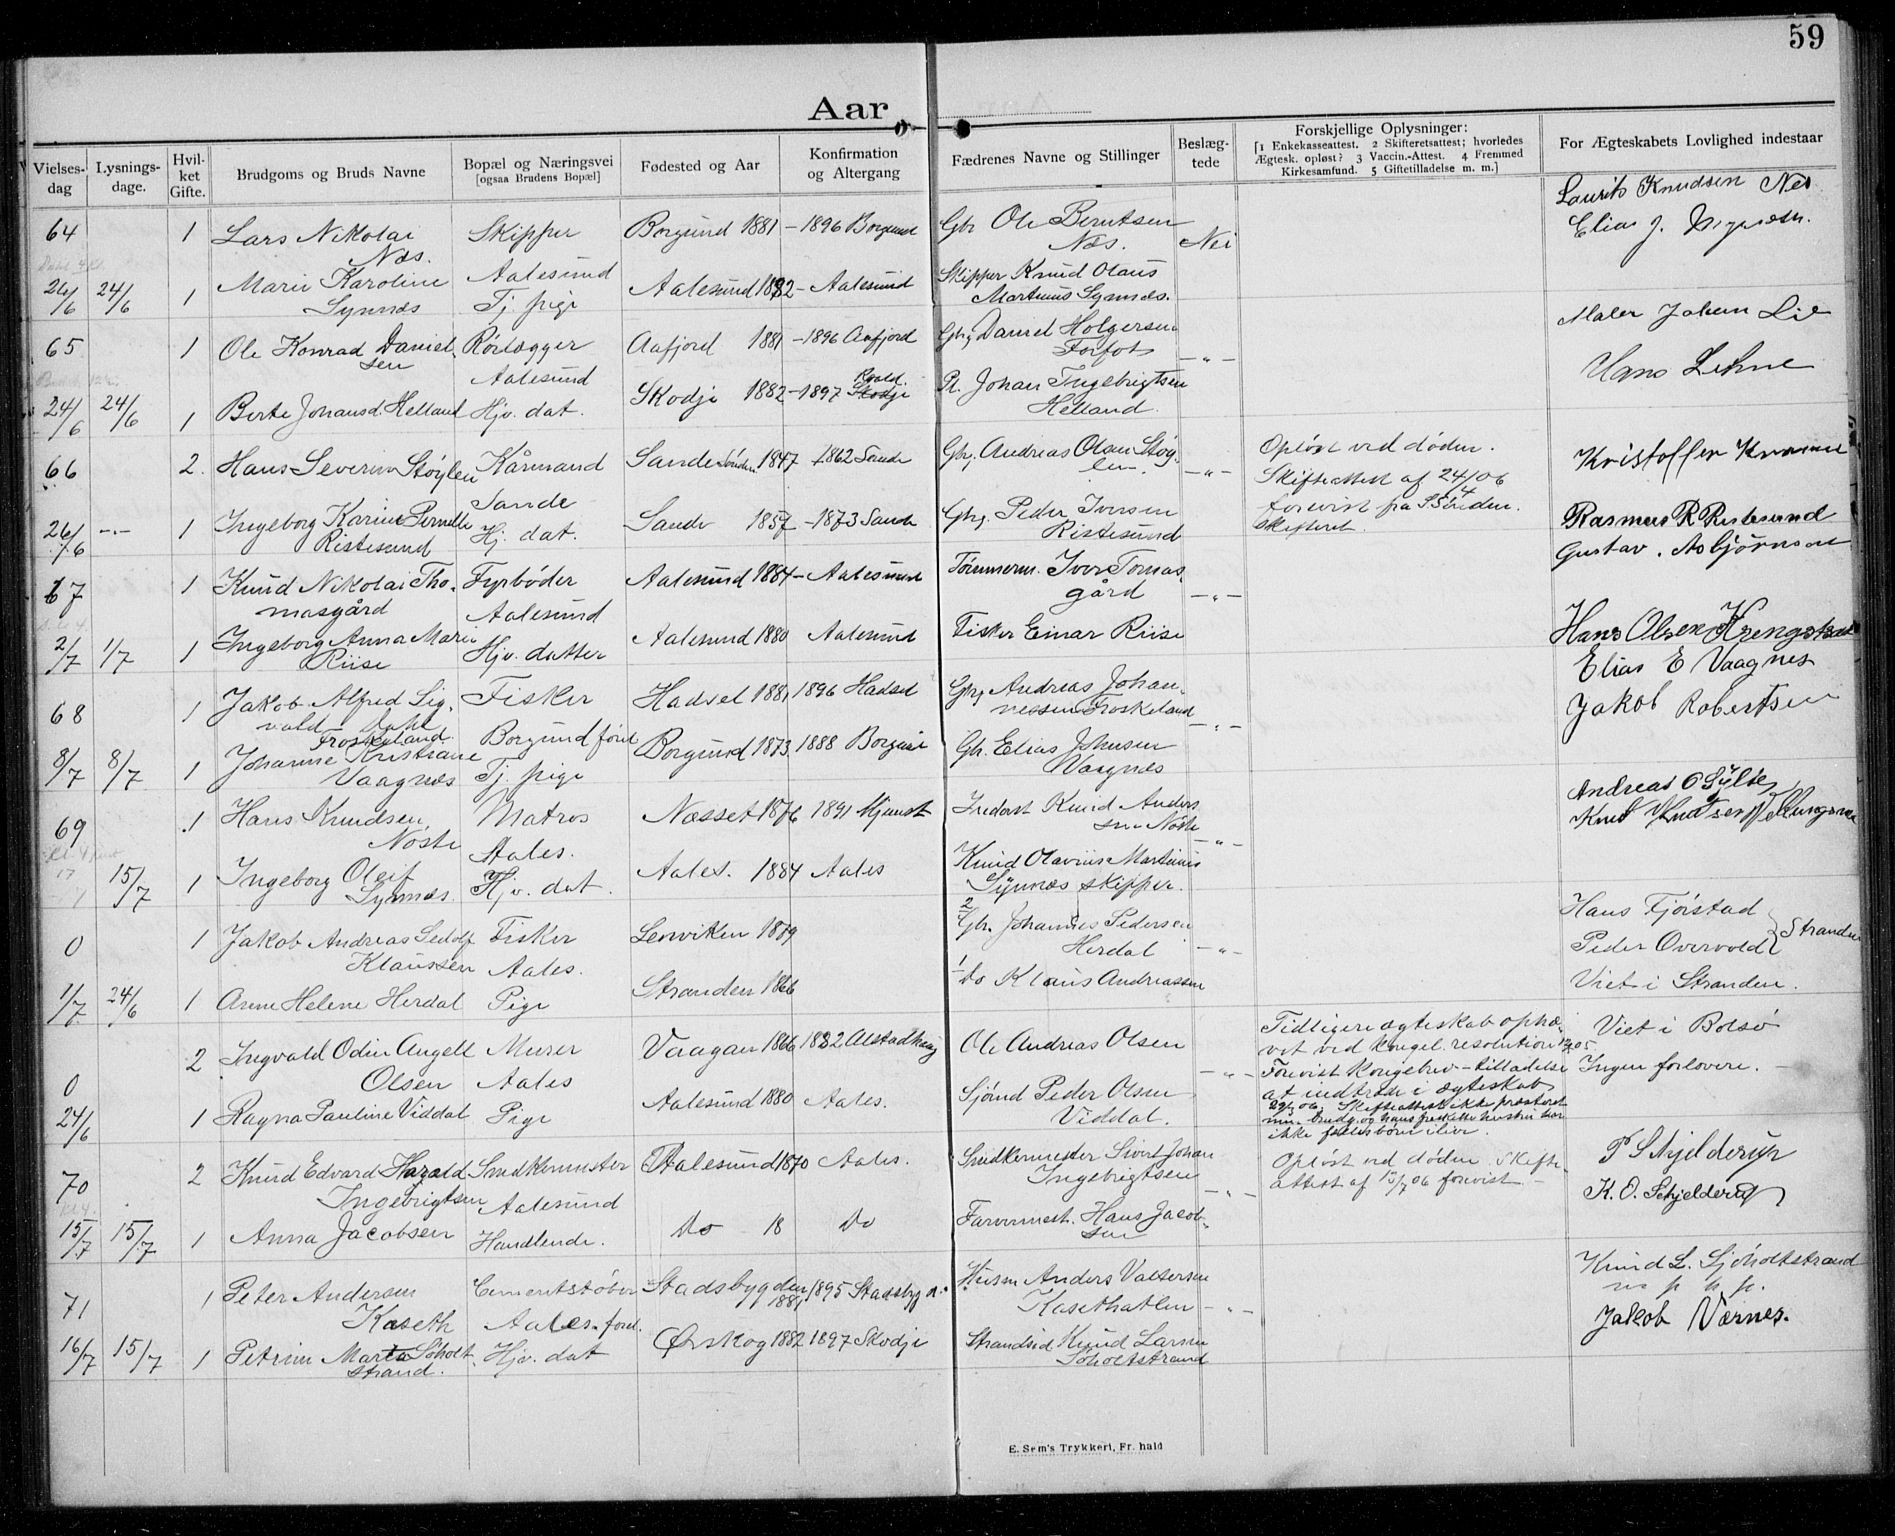 59
Aar
Vielses-dag
Lysnings-dage.
Hvil-ket Gifte.
Brudgoms og Bruds Navne
Bopæl og Næringsvei [ogsaa Brudens Bopæl]
Fødested og Aar
Konfirmation og Altergang
Fædrenes Navne og Stillinger
Beslæg-tede
Forskjellige Oplysninger: [1 Enkekasseattest. 2 Skifteretsattest; hvorledes Ægtesk. opløst? 3 Vaccin.-Attest. 4 Fremmed Kirkesamfund. 5 Giftetilladelse m. m.]
For Ægteskabets Lovlighed indestaar
64 1 Lars Nikolai Næs. Skipper Borgund 1881 - 1896 Borgund Gbr Ole Berntsen Næs. Nei Laurits Knudsen Nes Elias J.
26/6 24/6 1 Marie Karoline Synnæs Aalesund Tj. pige Aalesund 1882 - Aalesund Skipper Knud Olaus Martinus Synnæs.
65 1 Ole Konrad Daniel sen Rørlægger Aalesund Aafjord 1881 - 1896 Aafjord Gbr, Daniel Holgersen Forfot -"- Maler Johan Lie Hans Lehne
24/6 24/6 1 Berte Johansd Helland Hjv. dat. Skodje 1882 - 1897 Skodje Pl. Johan Ingebrigtsen Helland.
66 2. Hans Severin Støylen Kårmand Sande Sande Søndm. 1847 - 1862 Sande Gbr, Andreas Olsen Støy-len. -"- Opløst ved døden. Skifteattest af 24/4 06 forevist fra S. Sønden. skifteret. Kristoffer
26/6 -- 1 Ingeborg Karine Pernelle Ristesund Hj. dat. Sande 1857 - 1873 Sande Gbr. Peder Iversen Ristesund Rasmus R Ristesund Gustav. Asbjørnsen
67 1 Knud Nikolai Tho-masgård Fyrbøder Aalesund Aalesund 1884 - Aalesund Tømmerm. Iver Tomas-gård -"- Hans Olsen
2/7 1/7 1 Ingeborg Anna Marie Riise Hjv. datter Aalesund 1880 Aalesund Fisker Einar Riise Elias E Vaagnes
68 1 Jakob Alfred Sig-vald Dahl Froskeland. Fisker Borgund førd Hadsel 1881 1896 Hadsel Gbr, Andreas Johan-nessen Froskeland -"- Jakob Robertsen
8/7 8/7 1 Johanne Kristiane Vaagnæs Tj. pige Borgund 1873 1888 Borgund Gbr. Elias Johnsen Vaagnæs
69 1 Hans Knudsen, Nøste Matros Aales. Næsset 1876 1891 Inderst Knud Anders sen Nøste -"- Andreas O Sylte Knut Knutsen
15/7 1 Ingeborg Oleif Synnæs. Hjv. dat. Aales. 1884 Aales Knud Olavius Martinius Synnæs skipper.
0 1 Jakob Andreas Sedolf Klaussen Fisker Aales. Lenviken 1879 2 Gbr. Johannes Pedersen Herdal -"- Hans Fjørstad Peder Overvold } Stranden
1/7 24/6 1 Anne Helene Herdal Pige Stranden 1866 1 Do Klaus Andreassen Viet i Stranden.
0 2 Ingvald Odin Angell Olsen Murer Aales Vaagan 1866 1882 Alstadhaug Ole Andreas Olsen -"- Tidligere ægteskab ophæ-vet ved kongel. resolution Forevist Kongebrev - tilladelse at indtræde i ægteskab Viet i Bolsø Ingen forlovere.
24/6 1 Ragna Pauline Viddal Pige Aalesund 1880 Aales. Sjømd Peder Olsen Viddal. Skifteattest ikke præsteret brudg. og hans fraskilte hustru har ikke fælles børn ilive.
70 2 Knud Edvard Harald Ingebrigtsen Smedkermester Aalesund Aalesund 1870 Aales. Smedkermester Sivert Johan Ingebrigtsen -"- Opløst ved døden. Skifte-attest af 13/7 06 forevist P Schjelderup K. O. Schjelderup
15/7 15/7 1 Anna Jacobsen Handlende. Do 18 Do Farvermest. Hans Jacob-sen
71 1 Peter Andersen Kaseth Cementstøber Aales. ford. Stadsbygden 1881 1895 Stadsbygd. Husm Anders Valtersen Kasethatlen -"- Knud L. Sjøholtstrand m. p. h. p. Jakob Værnes.
16/7 15/7 1 Petrine Marta Søholt strand. Hjv. dat Ørskog 1882 1897 Skodje Strandsid Knud Larsen Søholtstrand
E. Sem's Trykkeri, Fr. hald